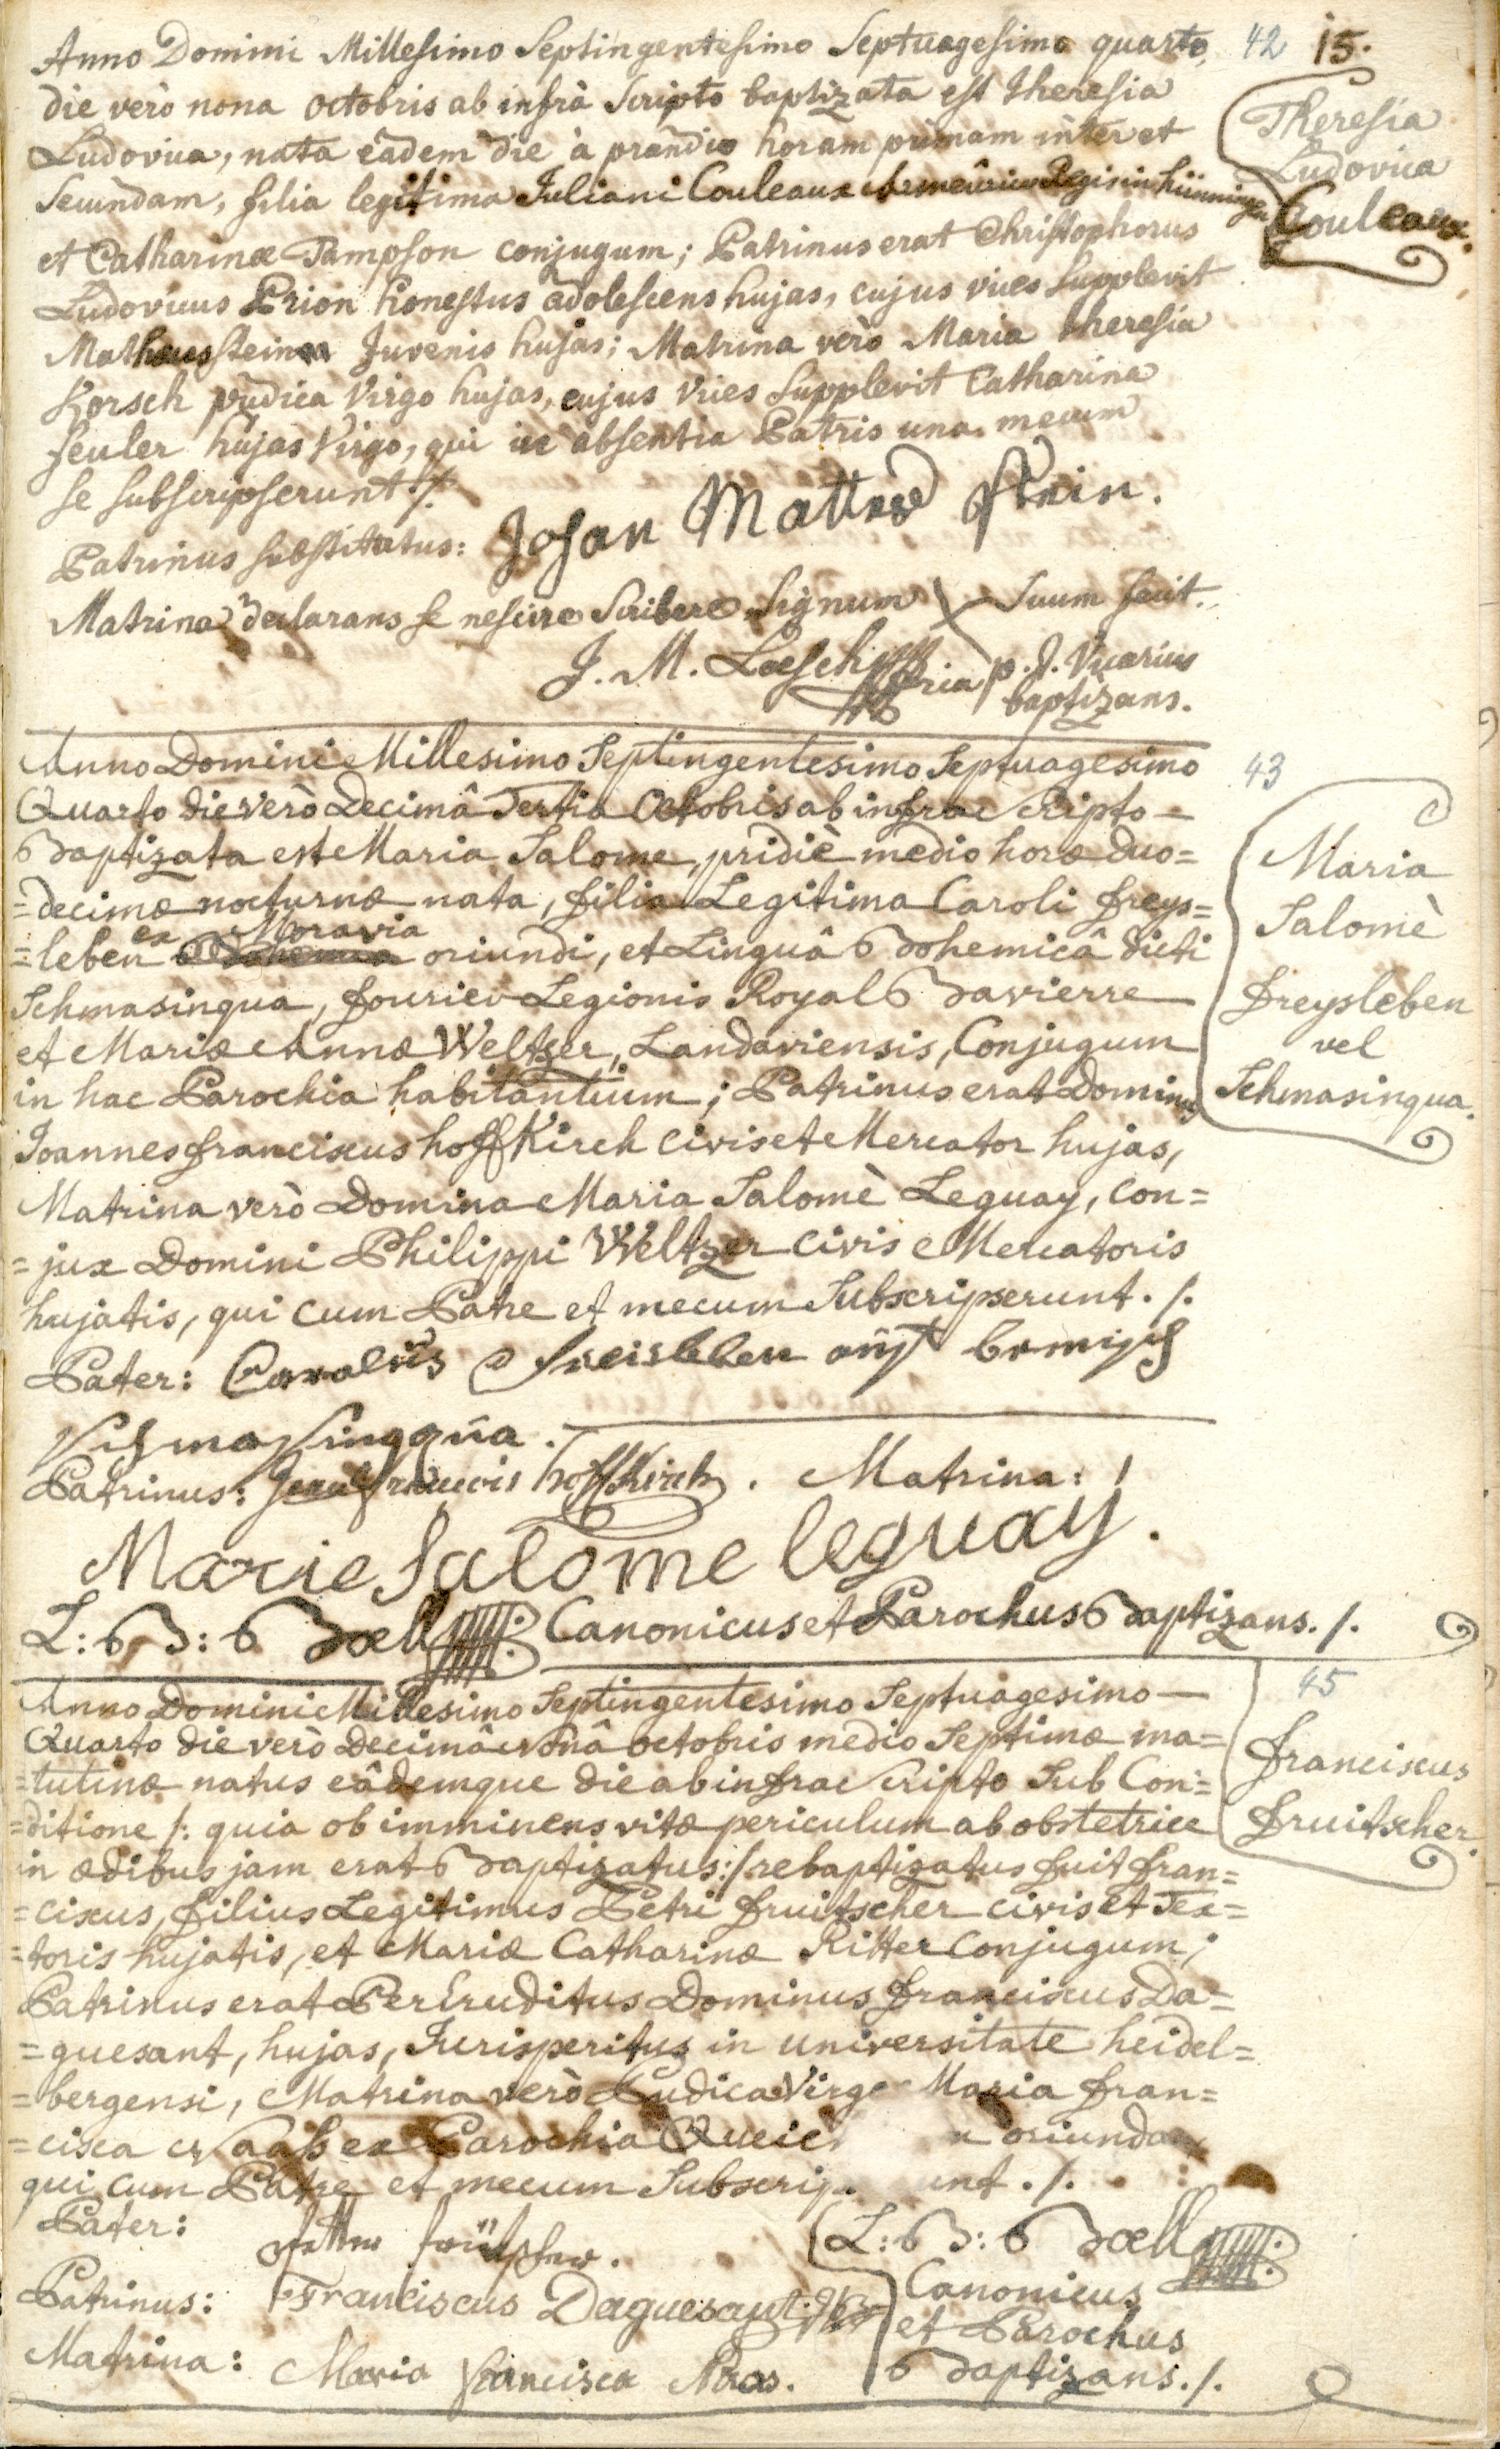 42 15.
Anno Domini Millesimo Septingentesimo Septuagesimo quarto,
die verò nona octobris ab infrà Scripto baptizata est theresia
Ludovica, nata eâdem die à prandio horam primam inter et
Secundam, filia legitima Juliani Couleaux Regis in hünningen
et Catharinæ Pampson conjugum; Patrinus erat Christophorus
Ludovicus Prion honestus adolescens hujas, cujus vices Supplevit
Juvenis hujas; Matrina verò Maria theresia
Korsch pudica Virgo hujas, cujus Vices Supplevit Catharina
feuler hujas Virgo, qui in absentia Patris una mecum
se subscripserunt ./.
Patrinus substitutus: Johan Matteus Stein.
Matrina declarans se nescire Scribere Signum X Suum fecit.
J. M. Loesch p. J. Vicarius
baptizans.
Theresia
Ludovica
Couleaux.
Anno Domini Millesimo Septingentesimo Septuagesimo
Quarto die verò Decimâ Tertia Octobris ab infrascripto =
Baptizata est Maria Salome, pridiè medio horæ duo=
=decimæ nocturnæ nata, filia Legitima Caroli freys=
ex Moravia
=leben Bohemia oriundi, et Linguâ Bohemicâ dicti
Schmasingua, fourier Legionis Royal Bavierre
et Mariæ Annæ Weltzer, Landaviensis, Conjugum
in hac Parochia habitantium; Patrinus erat Dominus
Joannes franciscus hoffKirch civis et Mercator hujas,
Matrina verò Domina Maria Salomè Leguay, con=
=jux Domini Philippi Weltzer civis Mercatoris
hujatis, qui cum Patre et mecum Subscripserunt ./.
Pater: Carolüs Freisleben
Patrinus: francois hoffKirch. Matrina:
Marie Salome leguay.
L: B: Boell Canonicus et Parochus Baptizans ./.
43
Maria
Salomè
freysleben
vel
Schmasingua.
Anno Domini Millesimo Septingentesimo Septuagesimo
Quarto die verò Decimâ Nonâ octobris medio Septimæ ma=
=tutinæ natus eâdemque die ab infrascripto Sub Con=
=ditione /: quia ob imminens vitæ periculum ab obstetrice
in ædibus jam erat Baptizatus :/ rebaptizatus fuit fran=
=ciscus, filius Legitimus Petri fruitscher civis et Tex=
=toris hujatis, et Mariæ Catharinæ Ritter Conjugum;
Patrinus erat PerEruditus Dominus franciscus Da=
=guesant, hujas, Jurisperitus in universitate heidel=
=bergensi, Matrina verò Pudica Virgo Maria fran=
=cisca Naas ex Parochia oriunda
qui cum Patre et mecum ./.
Pater:
Patrinus: Franciscus Daguesant
Matrina: Maria francisca Naas.
L: B: Boell
Canonicus
et Parochus
Baptizans ./.
45
franciscus
fruitscher.